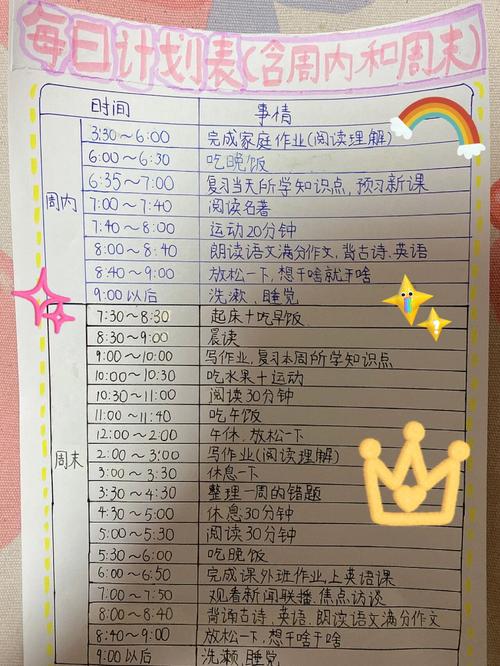 每日计划表(含周内和周末)
时间 事情
周内
3:30～6:00 完成家庭作业(阅读理解)
6:00～6:30 吃晚饭
6:35～7:00 复习当天所学知识点，预习新课
7:00～7:40 阅读名著
7:40～8:00 运动20分钟
8:00～8:40 朗读语文满分作文，背古诗、英语
8:40～9:00 放松一下，想干啥就干啥
9:00以后 洗漱、睡觉
周末
7:30～8:30 起床+吃早饭
8:30～9:00 晨读
9:00～10:00 写作业，复习本周所学知识点
10:00～10:30 吃水果+运动
10:30～11:00 阅读30分钟
11:00～11:40 吃午饭
12:00～2:00 午休、放松一下
2:00～3:00 写作业(阅读理解)
3:00～3:30 休息一下
3:30～4:30 整理一周的错题
4:30～5:00 休息30分钟
5:00～5:30 阅读30分钟
5:30～6:00 吃晚饭
6:00～6:50 完成课外班作业，上英语课
7:00～7:50 观看新闻联播、焦点访谈
8:00～8:40 背诵古诗、英语、朗读语文满分作文
8:40～9:00 放松一下、想干啥干啥
9:00以后 洗漱、睡觉